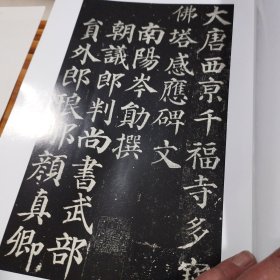 大唐西京千福寺多寶
佛塔感應碑文
南陽岑勛撰
朝議郎判尚書武部
員外郎琅邪顏真卿